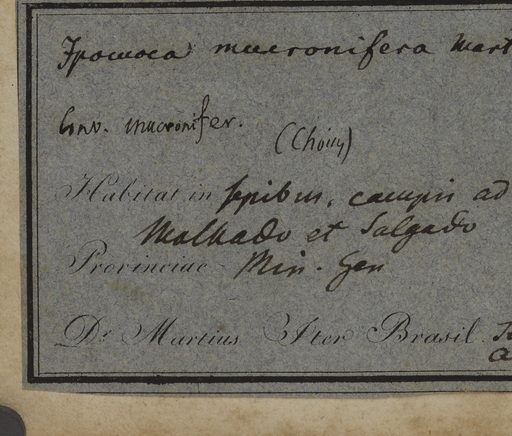 Ipomoea mucronifera Mart
Conv. mucronifer.
(Choisy)
Habitat in sepibus, campis ad
Malhado et Salgado
Provinciae Min. Gen
Dr. Martius Iter Brasil.